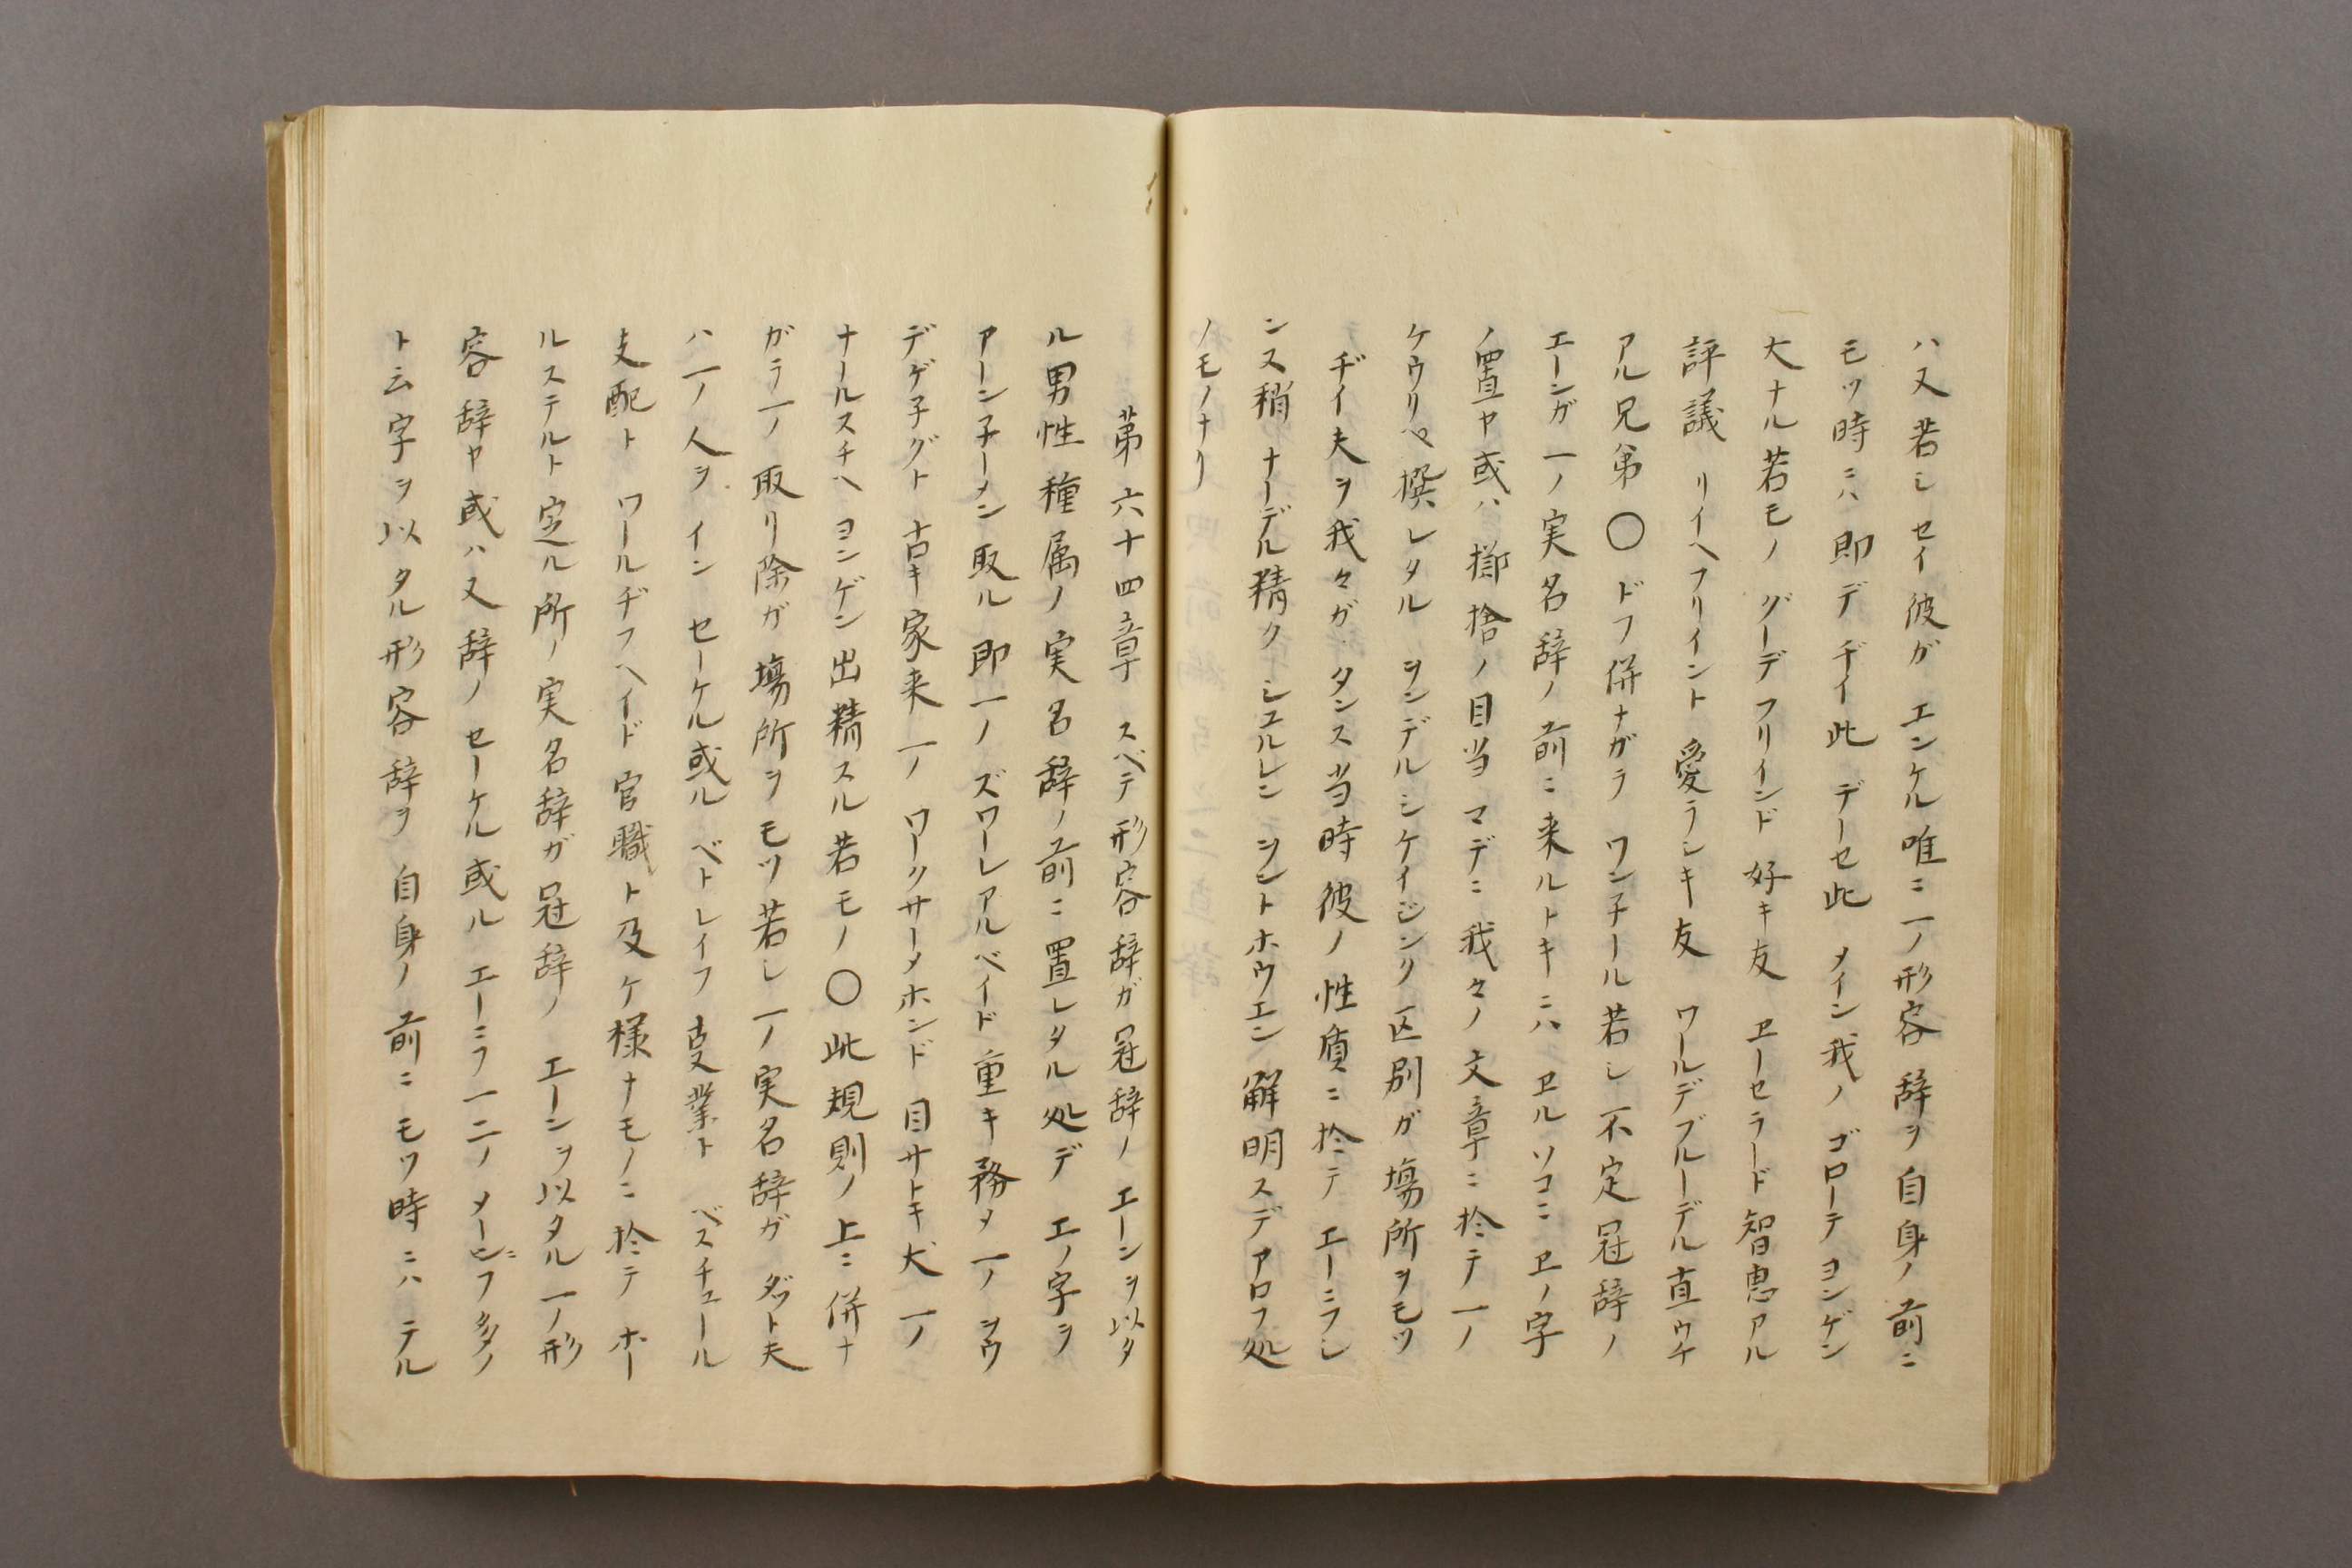 ハ又若シセイ彼ガエンケル唯ニ一ノ形容辞ヲ自身ノ前ニ
モツ時ニハ即デヂイ此デーセ此メイン我ノゴローテヨンゲン
大ナル若モノグーデフリインド好キ友ヱーセラード智恵アル
評議リイヘフリイント愛ラシキ友ワールデブルーデル直ウケ
アル兄弟〇ドフ併ナガラワン子ール若シ不定冠辞ノ
エーンガ一ノ実名辞ノ前ニ来ルトキニハヱルソコニヱノ字
ノ置ヤ或ハ擲捨ノ目当マデニ我々ノ文章ニ於テ一ノ
ケウリペ撰レタルヲンデルシケイジンク区別ガ場所ヲモツ
ヂイ夫ヲ我々ガタンス当時彼ノ性質ニ於テエーニフシ
ンス稍ナーデル精クシユルレンシントホウエン解明スデアロフ処
ノモノナリ
第六十四章スベテ形容辞ガ冠辞ノエーンヲ以タ
ル男性種属ノ実名辞ノ前ニ置レタル処デエノ字ヲ
アーン子ーメン取ル即一ノズワーレアルベイド重キ務メ一ノヲウ
デゲ子グト古キ家来一ノワークサーメホンド目サトキ犬一ノ
ナールスチヘヨンゲン出精スル若モノ〇此規則ノ上ニ併ナ
ガラ一ノ取リ除ガ場所ヲモツ若シ一ノ実名辞ガダット夫
ハ一ノ人ヲインセーケル或ルベトレイフ支業トベスチュール
支配トワールヂフヘイド官職ト及ケ様ナモノニ於テホー
ルステルト定ル所ノ実名辞ガ冠辞ノエーンヲ以タル一ノ形
容辞ヤ或ハ又辞ノセーケル或ルエーニフ一二ノメーニフ多ノ
ト云字ヲ以タル形容辞ヲ自身ノ前ニモツ時ニハテル